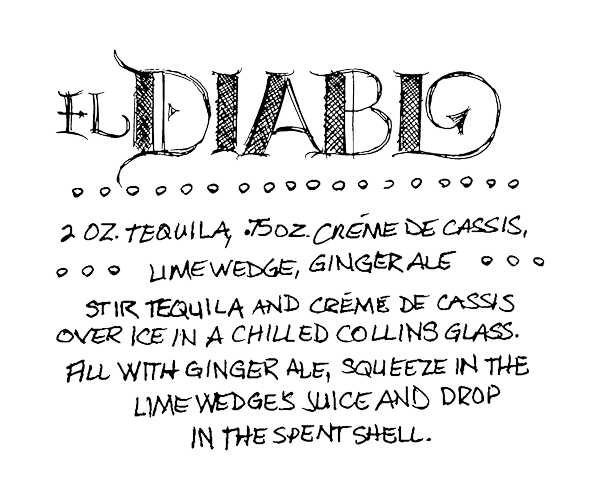 EL DIABLO
2 OZ. TEQUILA, .75 OZ. CRÉME DE CASSIS,
LIME WEDGE, GINGER ALE
STIR TEQUILA AND CRÉME DE CASSIS
OVER ICE IN A CHILLED COLLINS GLASS.
FILL WITH GINGER ALE, SQUEEZE IN THE
LIME WEDGE'S JUICE AND DROP
IN THE SPENT SHELL.